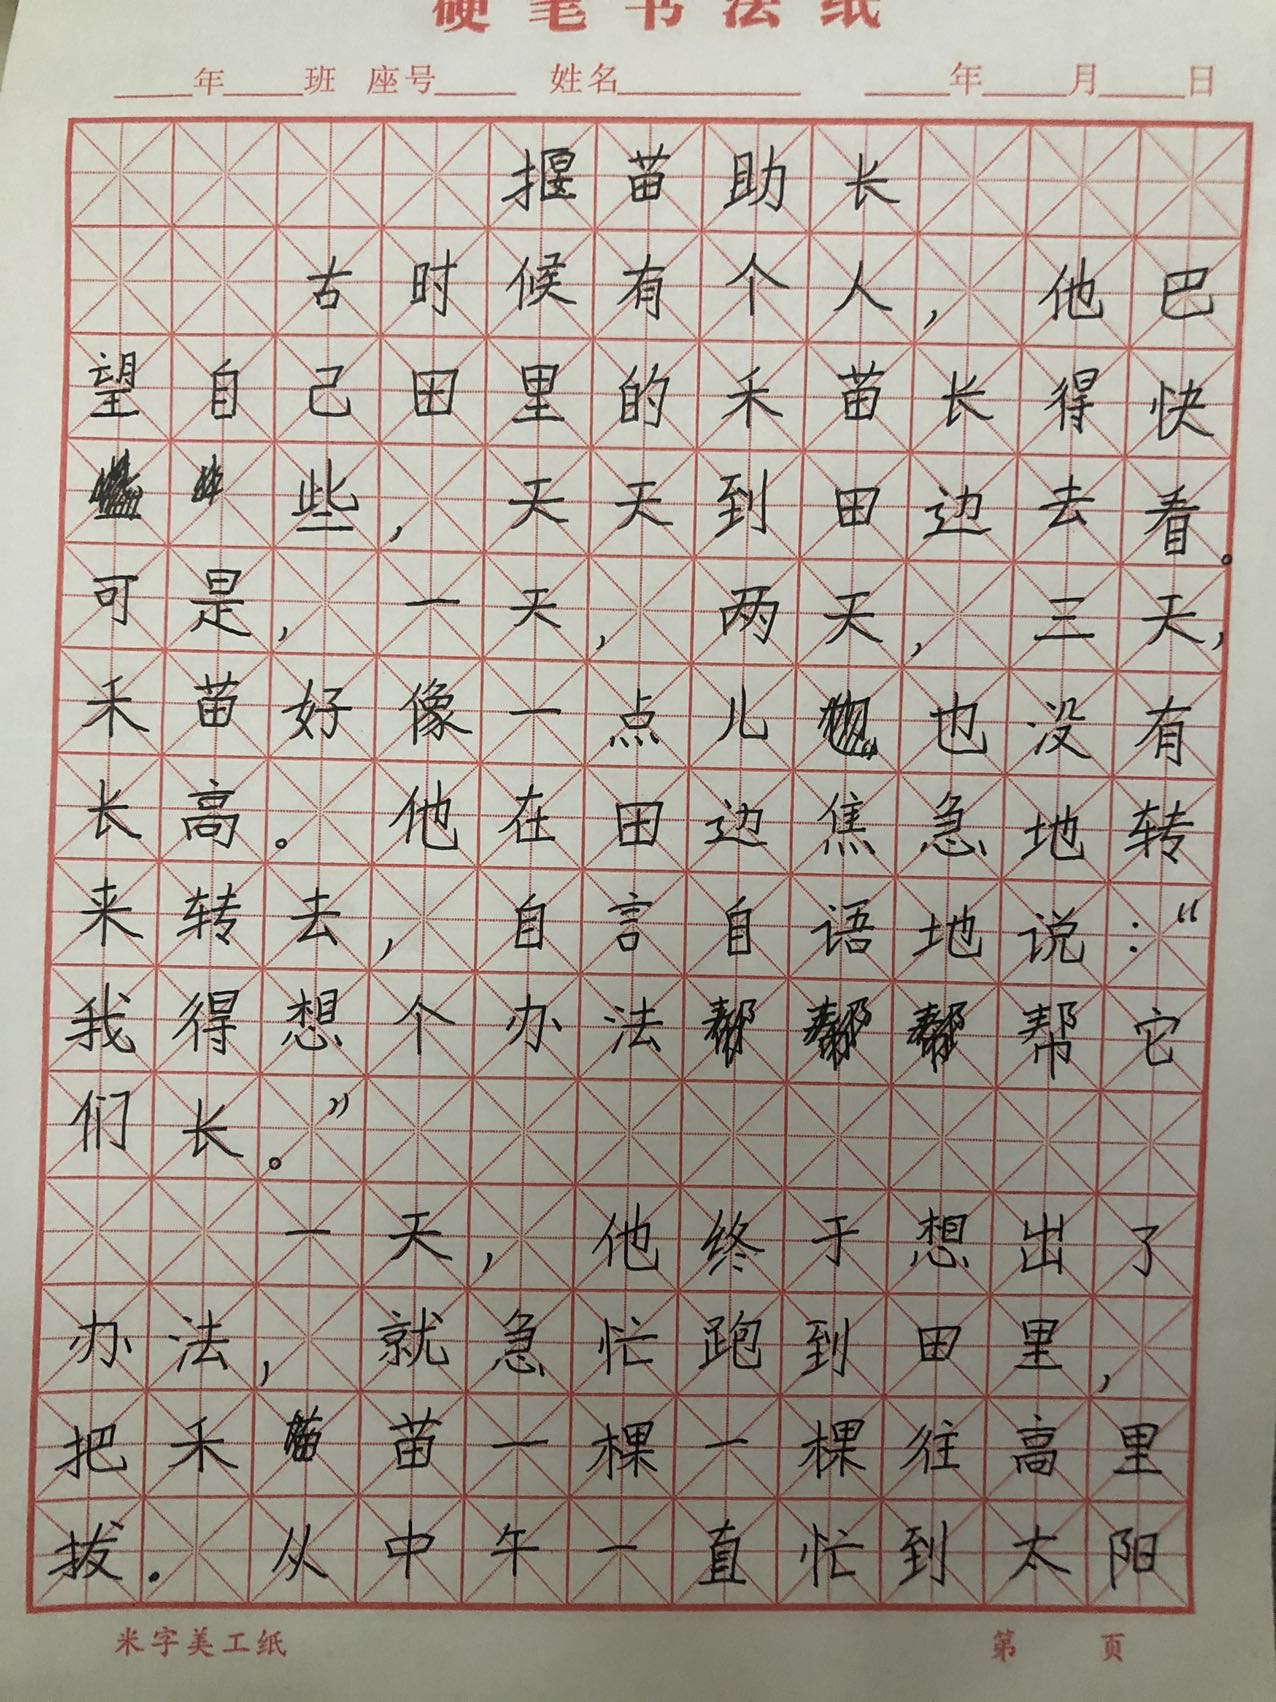 硬笔书法纸
年 班 座号 姓名 年 月 日
揠苗助长
古时候有个人，他巴
望自己田里的禾苗长得快
些，天天到田边去看。
可是，一天，两天，三天，
禾苗好像一点儿也没有
长高。他在田边焦急地转
来转去，自言自语地说：“
我得想个办法帮它
们长。”
一天，他终于想出了
办法，就急忙跑到田里，
把禾苗一棵一棵往高里
拔.从中午一直忙到太阳
米字美工纸 第 页